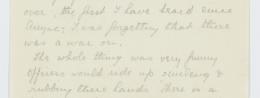 over, the first I have heard since
I was forgetting that there
was a war on.
The whole thing was very funny
officers would ride up smiling &
rubbing their hands "There is a